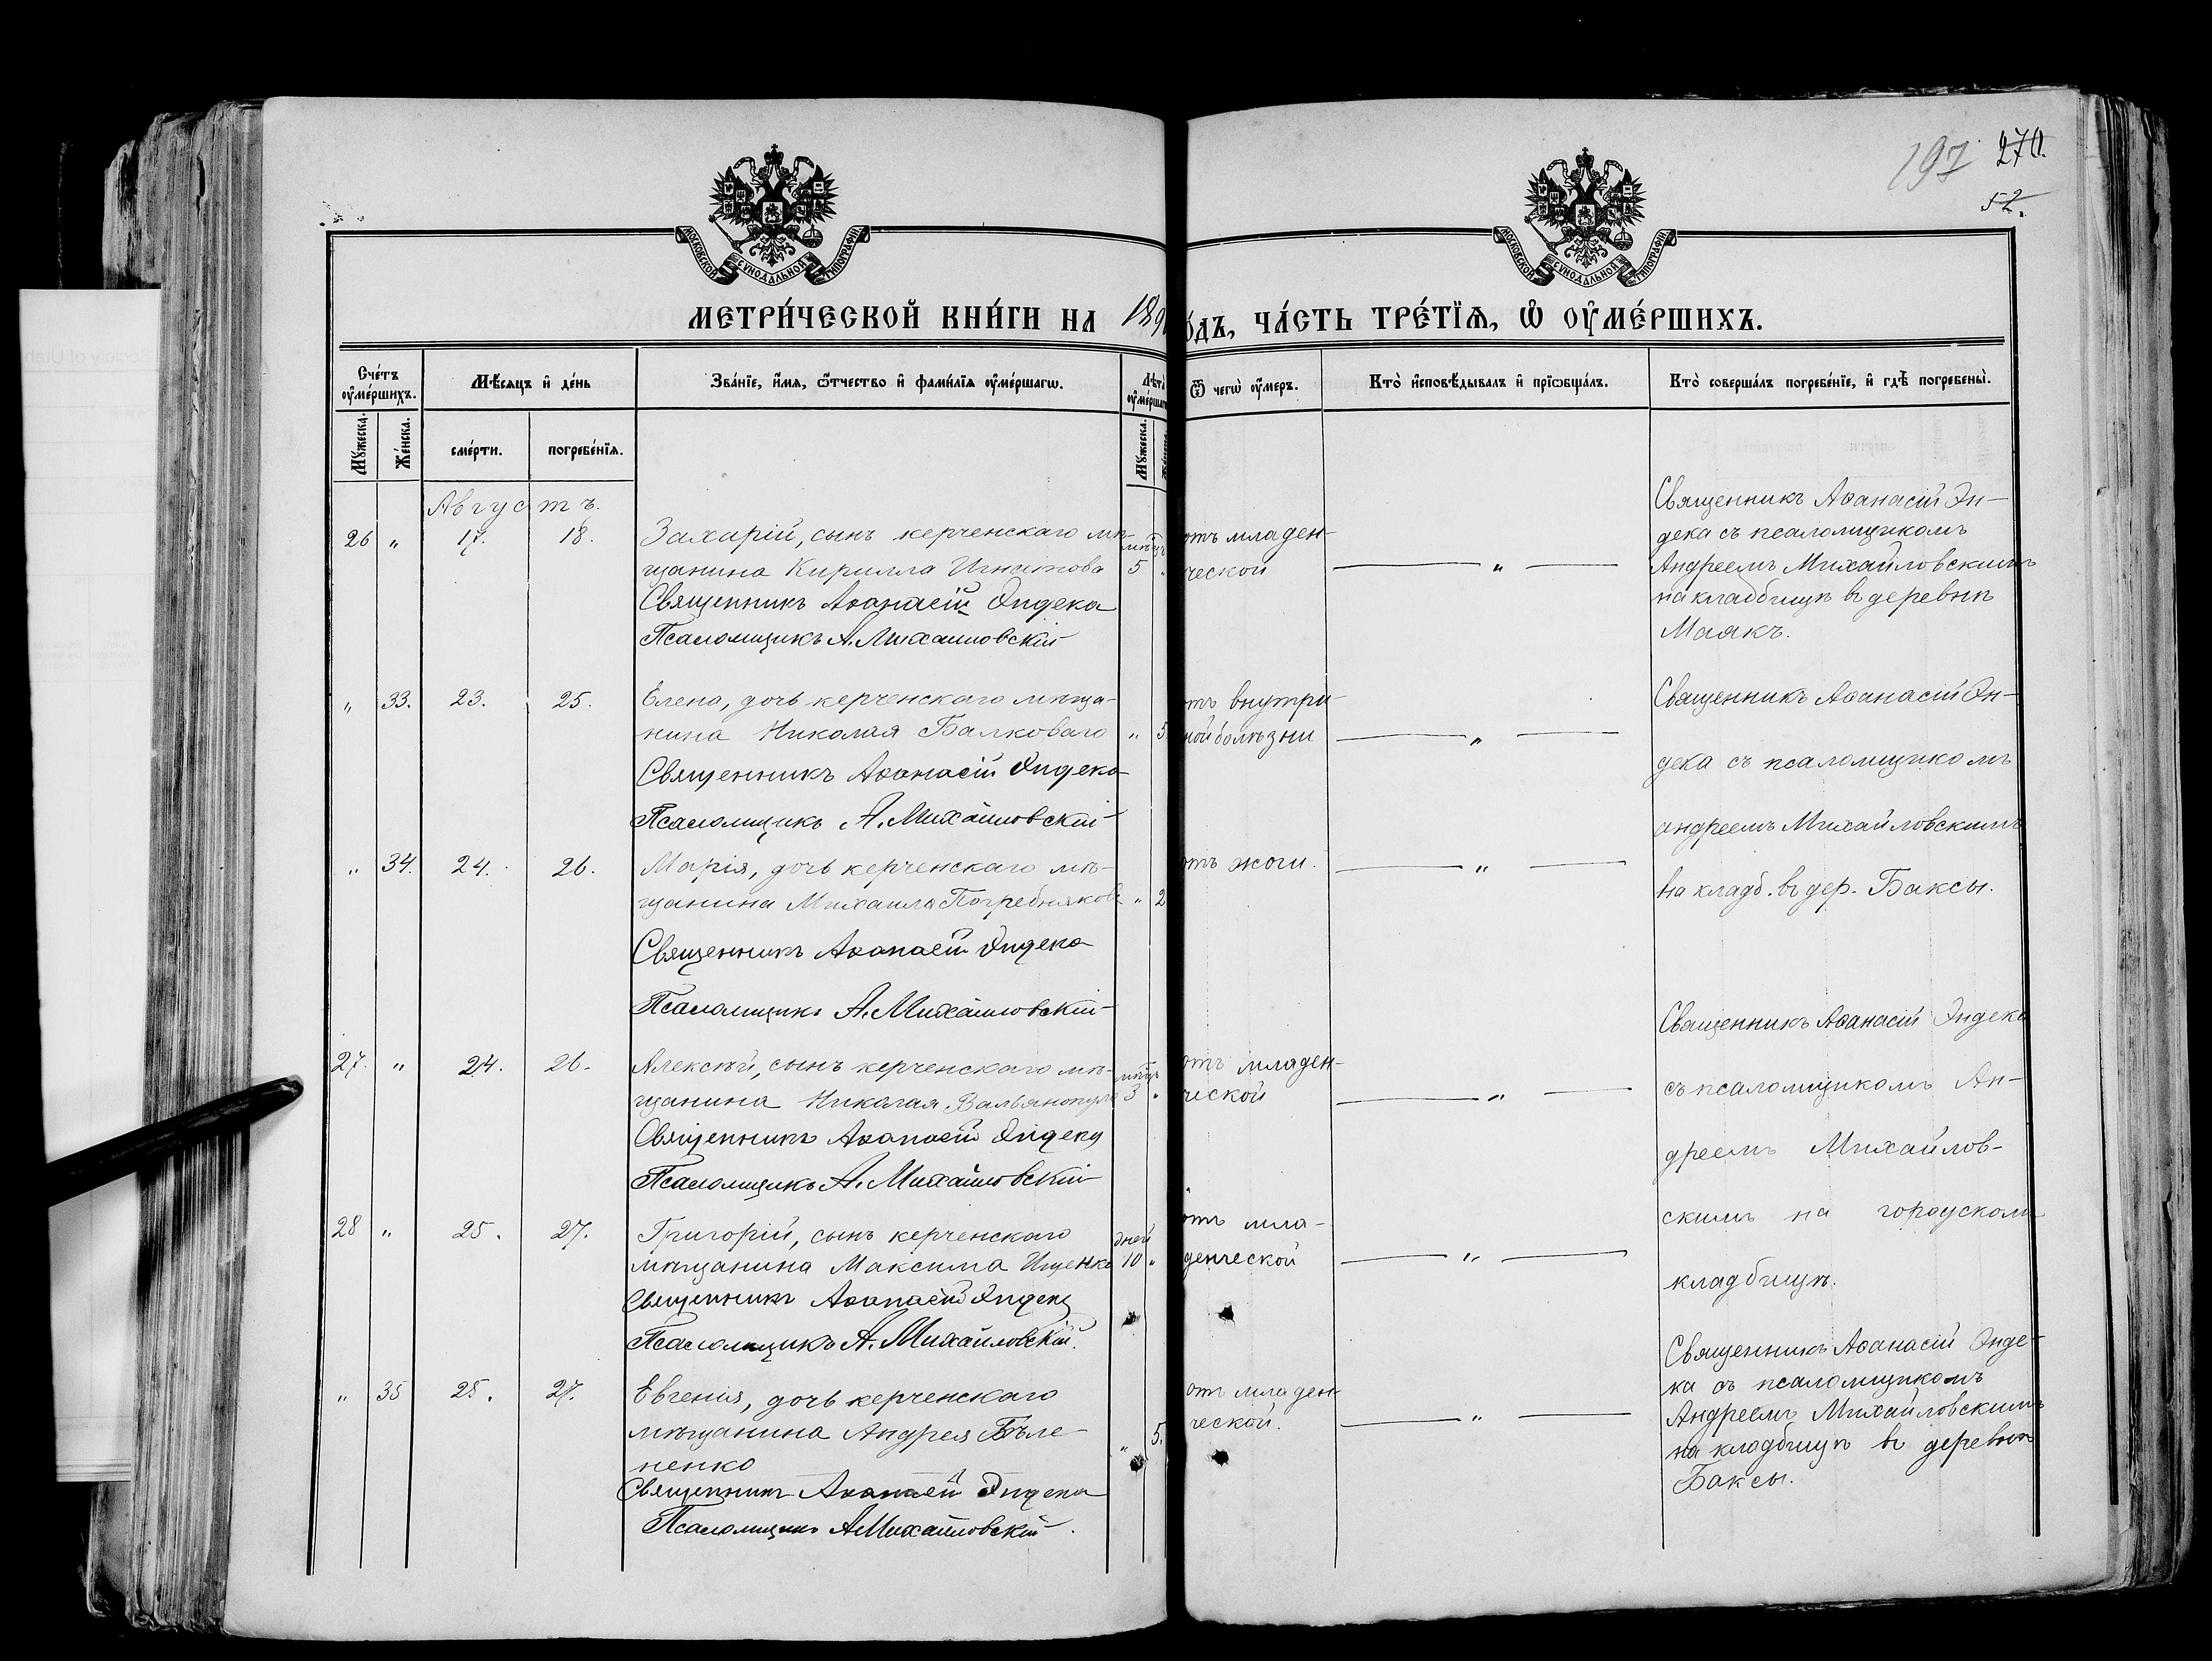 197 270.
52.
МОСКОВСКОЙ СѴНОДАЛЬНОЙ ТИПОГРАФІИ
МОСКОВСКОЙ СѴНОДАЛЬНОЙ ТИПОГРАФІИ
МЕТРИ́ЧЕСКОЙ КНИ́ГИ НА 189
О́ДЪ, ЧА́СТЬ ТРЕ́ТЇѦ, Ѡ ОУМЕ́РШИХЪ.
Сче́тъ оуме́ршихъ.
Мѣ́сяцъ и де́нь
Зва́нїе, и́мя, ѿтчество и фами́лїя оуме́ршагѡ.
Лѣта̀ оуме́ршаг
Ѿ чегѡ̀ оу́меръ.
Кто̀ исповѣ́дывалъ и прїѡбща́лъ.
Кто̀ соверша́лъ погребе́нїе, и гдѣ̀ погребены̀.
Мꙋ́жеска.
Же́нска.
сме́рти.
погребе́нїя.
Мꙋ́жеска.
Августъ.
26 " 17. 18.
Захарій, сынъ керченскаго мѣ-
щанина Кирилла Игнатова
Священникъ Аѳанасій Эндека
Псаломщикъ А. Михайловскій
мѣц
5 "
отъ младен-
ческой
"
Священникъ Аѳанасій Эн-
дека съ псаломщикомъ
Андреемъ Михайловскимъ
на кладбищѣ въ деревнѣ
Маякъ.
" 33. 23. 25.
Елена, дочь керченскаго мѣща-
нина Николая Балковаго
Священникъ Аѳанасій Эндека
Псаломщикъ А. Михайловскій
" 5
отъ внутри-
ной болѣзни
"
Священникъ Аѳанасій Эн-
дека съ псаломщикомъ
андреемъ Михайловскимъ
на кладб. въ дер. Баксы.
" 34. 24. 26.
Марія, дочь керченскаго мѣ-
щанина Михаила Погребнякова
Священникъ Аѳанасій Эндека
Псаломщикъ А. Михайловскій
" 2
отъ жоги.
"
27. " 24. 26.
Алексѣй, сынъ керченскаго мѣ-
щанина Николая Вальянопуло
Священникъ Аѳанасій Эндека
Псаломщикъ А. Михайловскій
мѣцъ
3 "
отъ младен-
ческой
"
Священникъ Аѳанасій Эндека
съ псаломщикомъ Ан-
дреемъ Михайлов-
скимъ на городскомъ
кладбищѣ.
28 " 25. 27.
Григорій, сынъ керченскаго
мѣщанина Максима Ищенко
Священникъ Аѳанасій Эндека
Псаломщикъ А. Михайловскій.
дней
10 "
отъ мла-
денческой
"
" 35 25. 27.
Евгенія, дочь керченскаго
мѣщанина Андрея Бѣле-
ненко
Священникъ Аѳанасій Эндека
Псаломщикъ А Михайловскій
" 5.
отъ младен-
ческой.
"
Священникъ Аѳанасій Энде-
ка съ псаломщикомъ
Андреемъ Михайловскимъ
на кладбищѣ въ деревнѣ
Баксы.